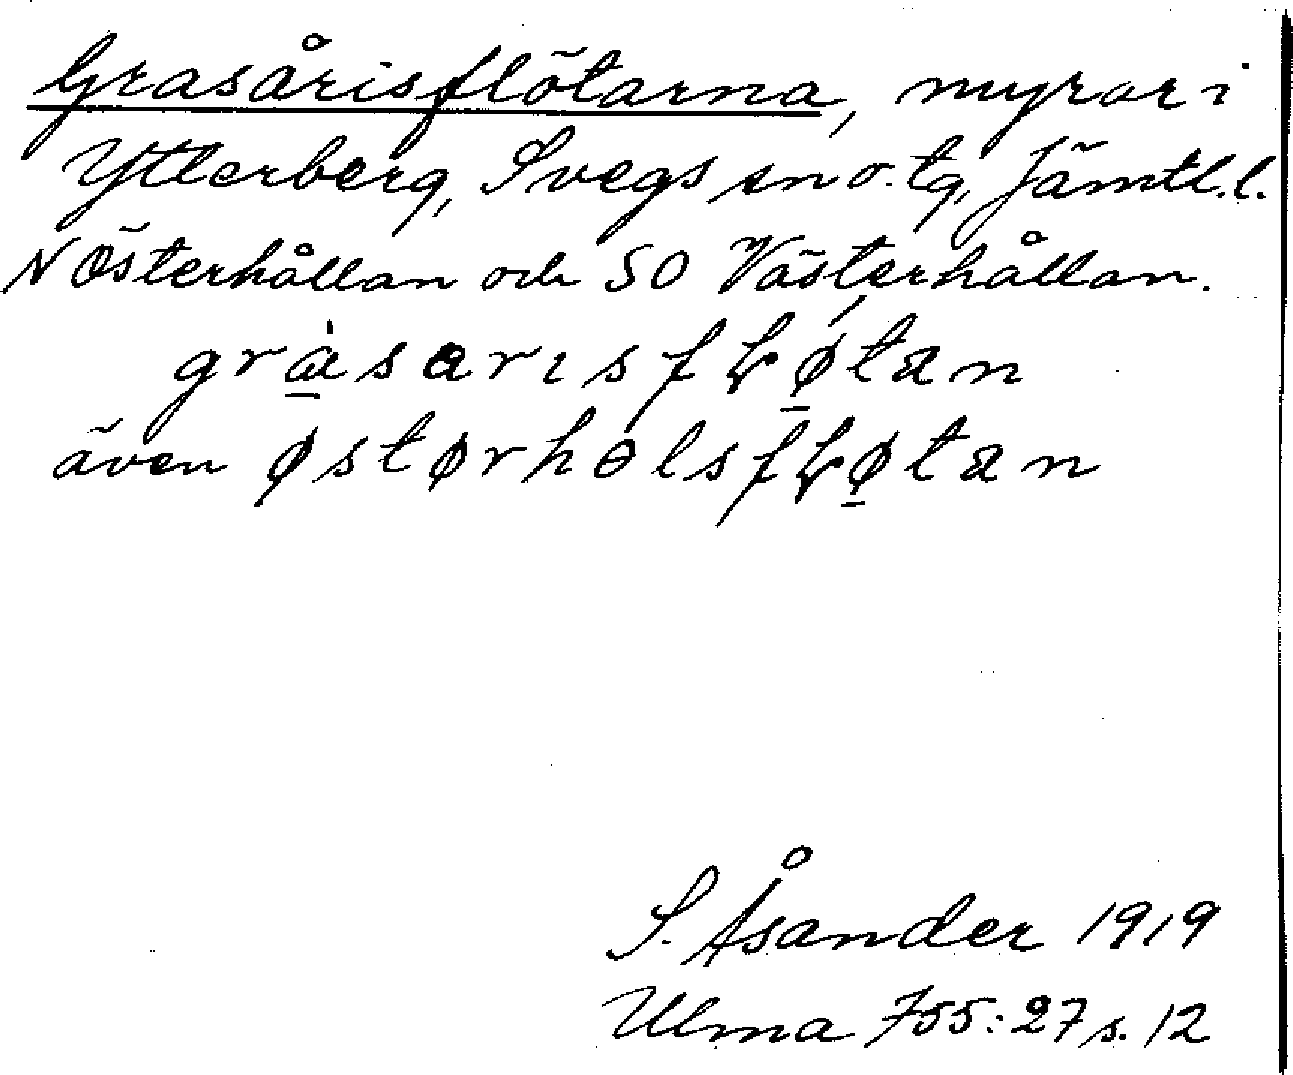 Grasårisflötarna, myrar i
Ytterberg, Svegs sn o. tg, Jämtl. l.
N Österhållan och SO Västerhållan.
gràsarısfɽøtan
även østørhɵlsfɽøtan
S. Åsander 1919
Ulma 755:27 s. 12